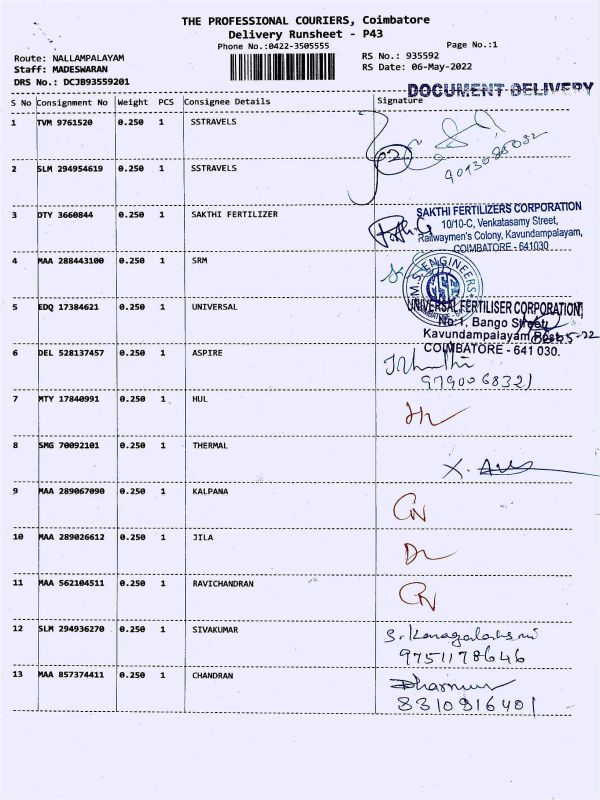 THE PROFESSIONAL COURIERS, Coimbatore
Delivery Runsheet - P43
Phone No.:0422-3505555
Page No.:1
Route: NALLAMPALAYAM
Staff: MADESWARAN
DRS No.: DCJB93559201
RS No.: 935592
RS Date: 06-May-2022
DOCUMENT DELIVERY
S No Consignment No Weight PCS Consignee Details Signature
1 TVM 9761520 0.250 1 SSTRAVELS
2 SLM 294954619 0.250 1 SSTRAVELS
3 DTY 3660844 0.250 1 SAKTHI FERTILIZER
SAKTHI FERTILIZERS CORPORATION
10/10-C, Venkatasamy Street,
Railwaymen's Colony, Kavundampalayam,
COIMBATORE - 641030
4 MAA 288443100 0.250 1 SRM
M.S. ENGINEERS
5 EDQ 17384621 0.250 1 UNIVERSAL
UNIVERSAL FERTILISER CORPORATION
No:1, Bango Street,
Kavundampalayam Post,
COIMBATORE - 641 030.
6 DEL 528137457 0.250 1 ASPIRE
9790068321
7 MTY 17840991 0.250 1 HUL
8 SMG 70092101 0.250 1 THERMAL
9 MAA 289067090 0.250 1 KALPANA
10 MAA 289026612 0.250 1 JILA
11 MAA 562104511 0.250 1 RAVICHANDRAN
12 SLM 294936270 0.250 1 SIVAKUMAR
9751178646
13 MAA 857374411 0.250 1 CHANDRAN
8310916401